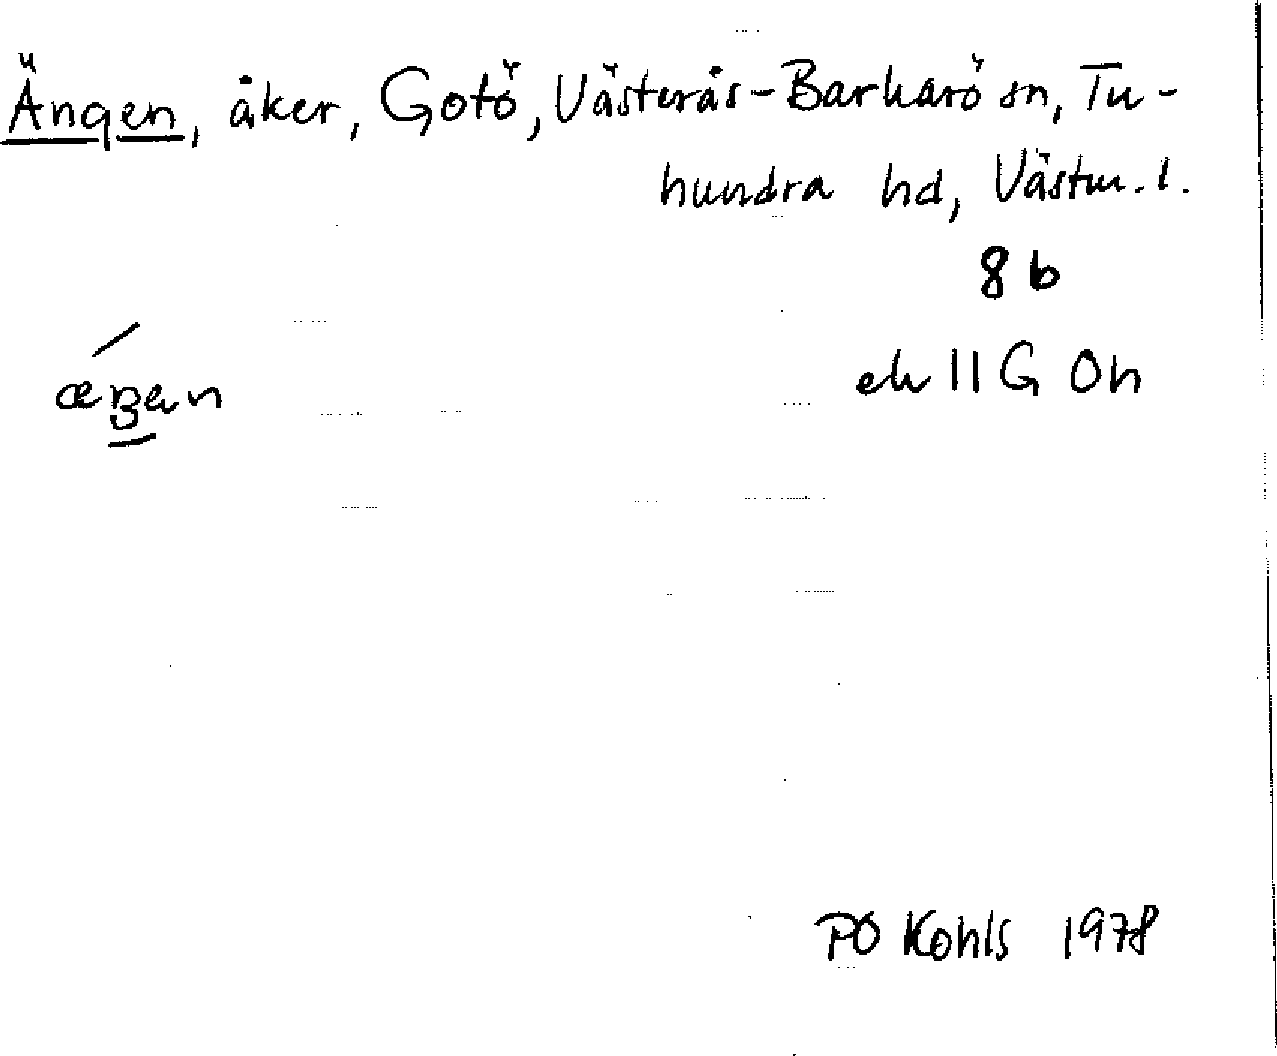 Ängen, åker, Gotö, Västerås-Barkarö sn, Tu-
hundra hd, Västm. l.
8 b
ek 11 G 0h
PO Kohls 1978